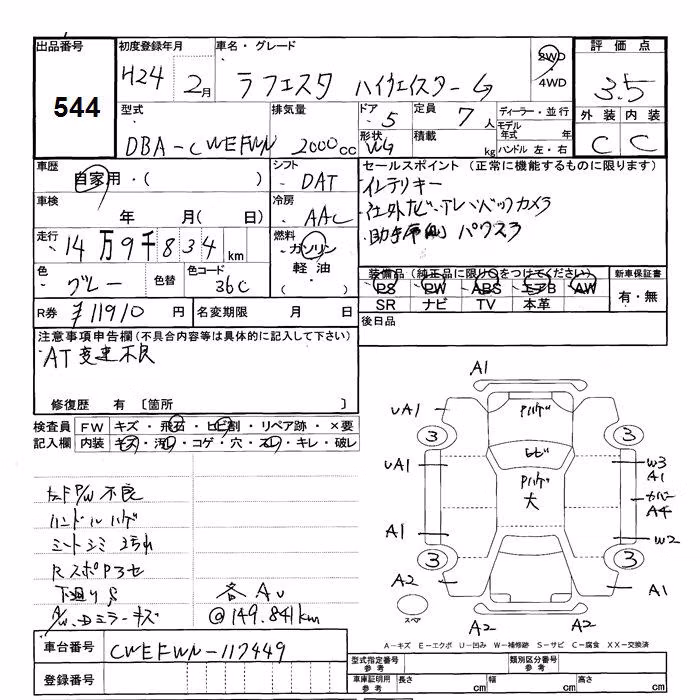 出品番号 初度登録年月 車名・グレード 評価点
544 H24 2月 ラフェスタ ハイウェイスターG 2WD 4WD 3.5
型式 排気量 ドア 定員 ディーラー・並行 外装 内装
DBA-CWEFWN 2000cc 5 7人 モデル年式 年 C C
形状 WG 積載 kg ハンドル 左・右
車歴 自家用・( ) シフト DAT
セールスポイント (正常に機能するものに限ります)
インテリキー
社外ナビ、アレ、バックカメラ
助手席側 パワスラ
車検 年 月( 日) 冷房 AAC
走行 14万9千834km 燃料 ガソリン 軽油 ( )
色 グレー 色替 色コード 36C
装備品 (純正品に限り○をつけてください) 新車保証書
PS PW ABS エアB AW 有・無
SR ナビ TV 本革
R券 ¥11910円 名変期限 月 日 後日品
注意事項申告欄(不具合内容等は具体的に記入して下さい)
AT変速不良
修復歴 有 〔箇所 〕
検査員 FW キズ・飛石・ヒビ割・リペア跡・×要
記入欄 内装 キズ・汚れ・コゲ・穴・スレ・キレ・破レ
P/W不良
ハンドルハゲ
シートシミ 汚れ
RスポPハセ
下廻りS
ミラーキズ
各AU
@149.841km
A1
UA1 Pハゲ
3 3
ヒビ
UA1 W3
A1
Pハゲ 大
カバー A4
A1 W2
3 3
A2 A1
スペア A2 A2
A-キズ E-エクボ U-凹み W-補修跡 S-サビ C-腐食 XX-交換済
車台番号 CWEFWN-117449
登録番号
型式指定番号 参考 類別区分番号 参考
車庫証明用 参考 長さ cm 幅 cm 高さ cm